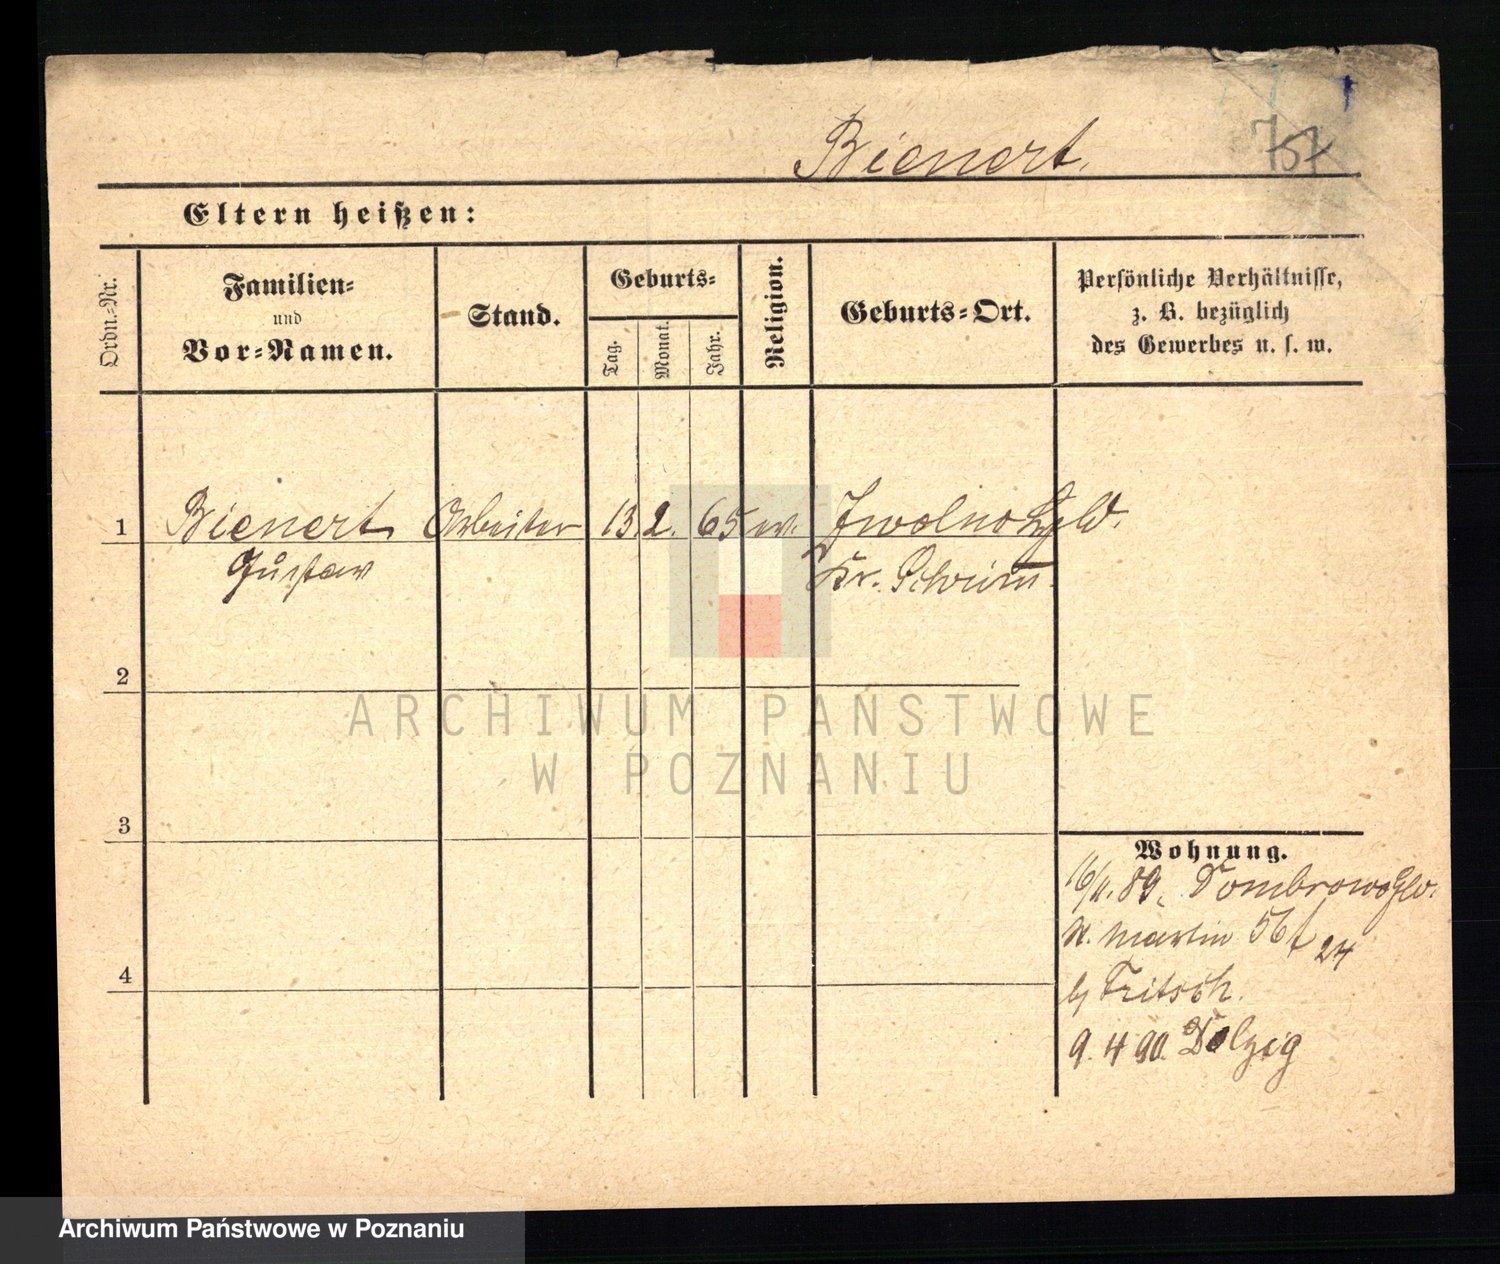 Bienert.
757
Eltern heißen:
Ordn.-Nr.
Familien-
und
Vor-Namen.
Stand.
Geburts-
Tag.
Monat.
Jahr.
Religion.
Geburts-Ort.
Persönliche Verhältnisse,
z. B. bezüglich
des Gewerbes u. s. w.
1 Bienert Arbeiter 13. 2. 65 ev. Iwolno
Gustav Kr. Schrim.
2
ARCHIWUM PAŃSTWOWE
W POZNANIU
3
Wohnung.
89.
St. Martin 56 24
b/ Fritsch.
4
9. 4 90. Dolzig
Archiwum Państwowe w Poznaniu